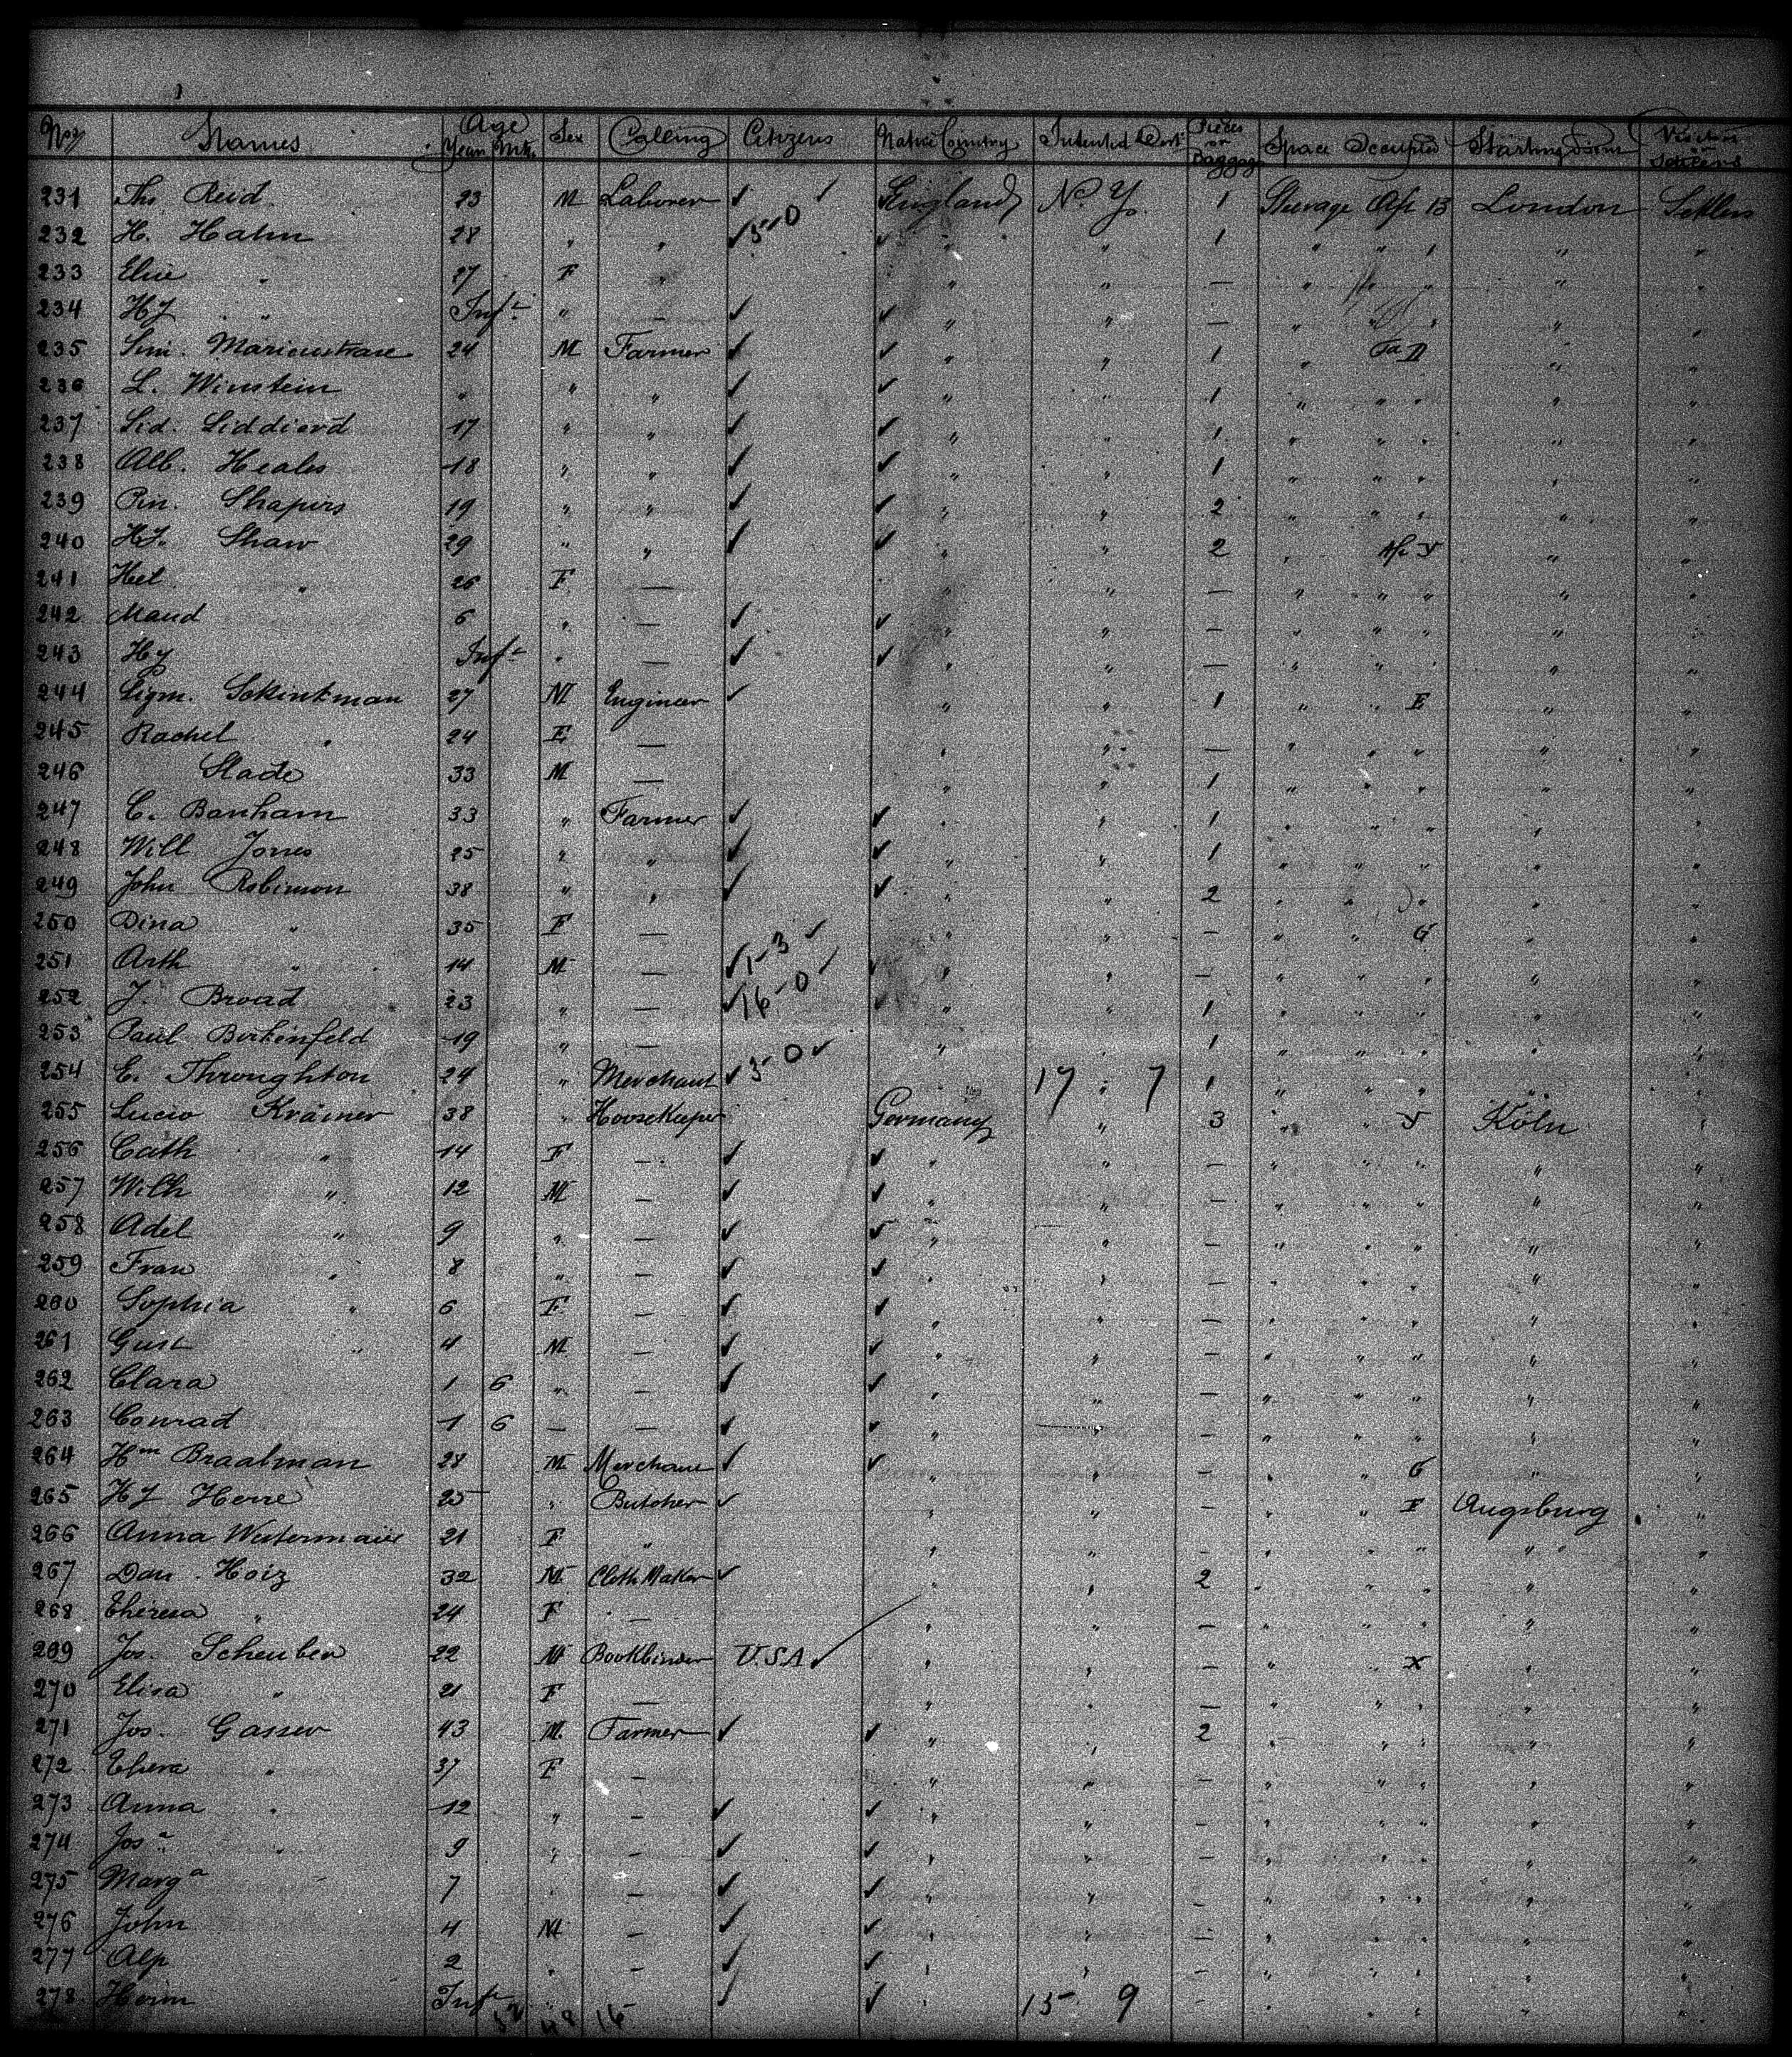 Nos Names Age Years Mts. Sex Calling Citizens Native Country Intended Dest. Pieces or Baggage Space Occupied Starting from Visitors or Settlers
231 Ths Reid 23 M Laborer ✓ ✓ England N. Y. 1 Steerage Aft B London Settlers
232 H. Hahn 28 " " ✓ 5-0 ✓ " " 1 " " " " "
233 Elise " 27 F " " " — " " " " "
234 Hy " Inft " — ✓ ✓ " " — " " " " "
235 Sim. 24 M Farmer ✓ ✓ " " 1 " D " "
236 L. Winstein " " " ✓ ✓ " " 1 " " " " "
237 Sid. Siddierd 17 " " ✓ ✓ " " 1 " " " " "
238 Alb. Heales 18 " " ✓ ✓ " " 1 " " " " "
239 Pin. Shapirs 19 " " ✓ ✓ " " 2 " " " " "
240 Hy. Shaw 29 " " ✓ ✓ " " 2 " " "
241 Hel " 26 F — " " — " " " " "
242 Maud 6 " — ✓ ✓ " " — " " " " "
243 Hy Inft " — ✓ ✓ " " — " " " " "
244 Sigm. Schinkman 27 M Engineer ✓ " " 1 " " E " "
245 Rachel " 24 F — " " — " " " " "
246 Slade 33 M — " " 1 " " " " "
247 C. Banham 33 " Farmer ✓ ✓ " " 1 " " " " "
248 Will Jones 25 " " ✓ ✓ " " 1 " " " " "
249 John Robinson 38 " " ✓ ✓ " " 2 " " " " "
250 Dina " 35 F — " " — " " G " "
251 Arth " 14 M — ✓ 1-3 ✓ ✓ " " — " " " " "
252 J. Broad 23 " — ✓ 16-0 ✓ ✓ " " 1 " " " " "
253 Paul Birkenfeld 19 " — " " 1 " " " " "
254 E. Throughton 24 " Merchant ✓ 3-0 ✓ 17 " 7 1 " " " " "
255 Lucie Krämer 38 " Hoosekeeper Germany " 3 " " Köln "
256 Cath " 14 F — ✓ ✓ " " — " " " " "
257 Wilh " 12 M — ✓ ✓ " " — " " " " "
258 Adel " 9 " — ✓ ✓ " " — " " " " "
259 Fran " 8 " — ✓ ✓ " " — " " " " "
260 Sophia " 6 F — ✓ ✓ " " — " " " " "
261 Gust " 4 M — ✓ ✓ " " — " " " " "
262 Clara 1 6 " — ✓ ✓ " " — " " " " "
263 Conrad 1 6 — — ✓ ✓ " " — " " " " "
264 Hm Braalman 28 M Merchant ✓ ✓ " " — " " G " "
265 Hy Herre 25 " Butcher ✓ " " — " " E Augsburg "
266 Anna Westermaier 21 F " " " — " " " " "
267 Dan. Hoiz 32 M Cloth Maker ✓ " " 2 " " " " "
268 Theresa " 24 F — " " — " " " " "
269 Jos. Scheuber 22 M Bookbinder U.S.A ✓ " " — " X " "
270 Elisa " 21 F — " " — " " " " "
271 Jos. Gasser 43 M Farmer ✓ ✓ " " 2 " " " " "
272 Thera " 37 F — " " — " " " " "
273 Anna " 12 " — ✓ ✓ " " — " " " " "
274 Josa " 9 " — ✓ ✓ " " — " " " " "
275 Marga 7 " — ✓ ✓ " " — " " " " "
276 John 4 M — ✓ ✓ " " — " " " " "
277 Alp 2 " — ✓ ✓ " " — " " " " "
278 Herm Inft " — ✓ ✓ " 15 9 — " " " " "
48 16